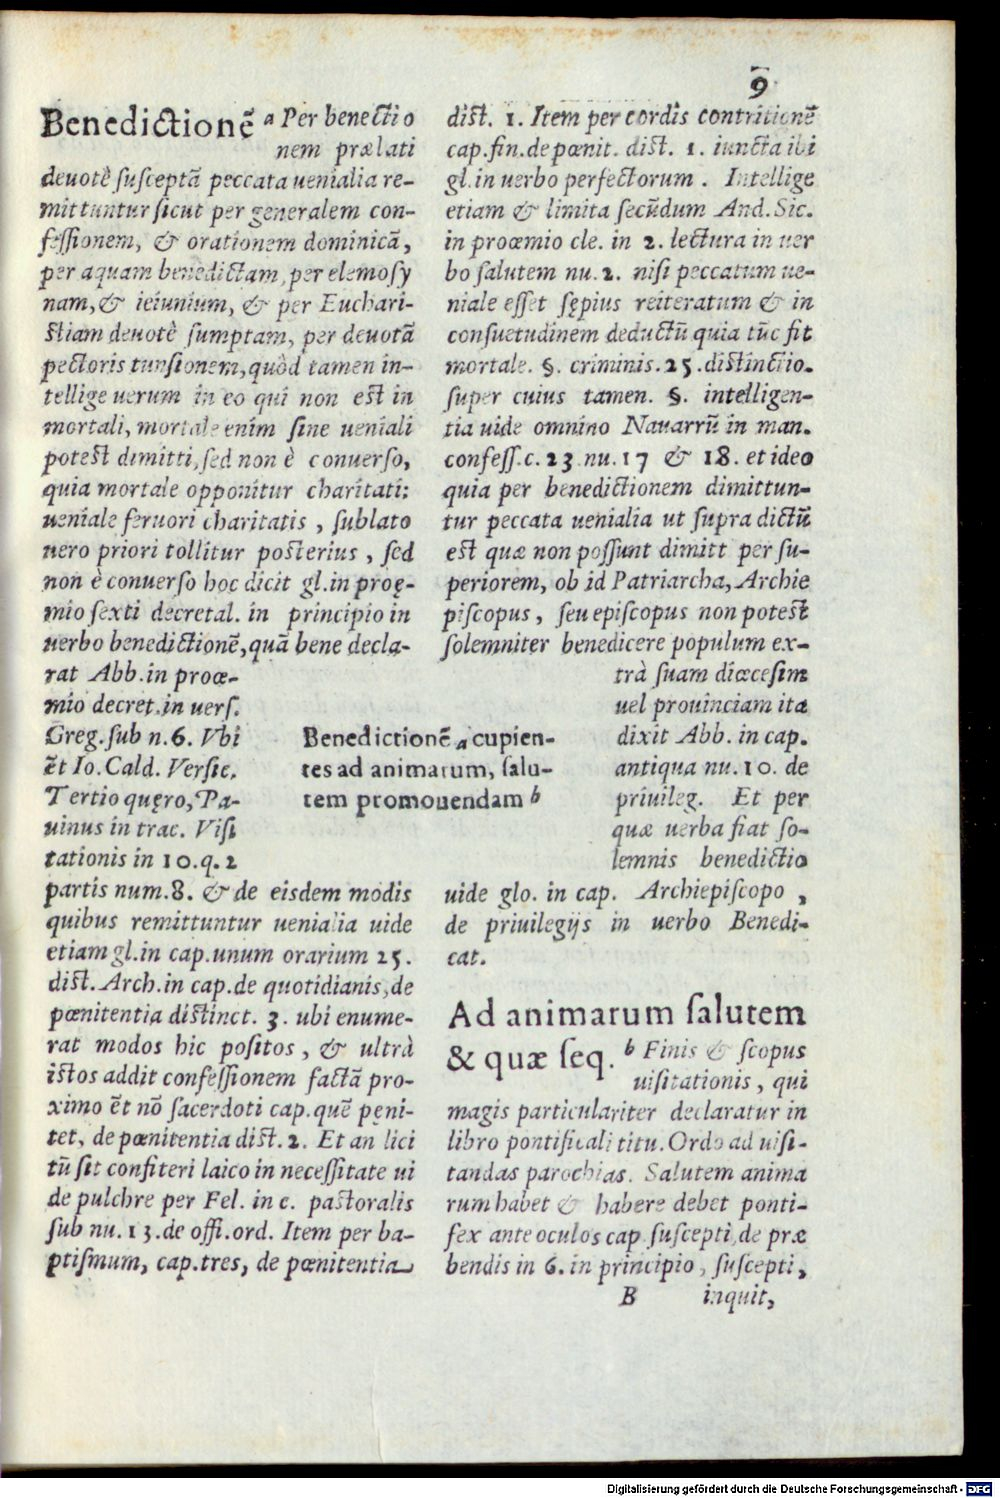 9
Benedictionē a Per benectio
nem prælati
deuotè ſuſceptā peccata uenialia re-
mittuntur ſicut per generalem con-
feſſionem, & orationem dominicā,
per aquam benedictam, per elemoſy
nam, & ieiunium, & per Euchari-
ſtiam deuotè ſumptam, per deuotā
pectoris tunſionem, quòd tamen in-
tellige uerum in eo qui non eſt in
mortali, mortale enim ſine ueniali
poteſt dimitti, ſed non è conuerſo,
quia mortale opponitur charitati:
ueniale feruori charitatis, ſublato
uero priori tollitur poſterius, ſed
non è conuerſo hoc dicit gl. in proę-
mio ſexti decretal. in principio in
uerbo benedictionē, quā bene decla-
rat Abb. in proœ-
mio decret. in uerſ.
Greg. ſub n. 6. Vbi
ēt Io. Cald. Verſic.
Tertio quęro, Pa-
uinus in trac. Viſi
tationis in 10. q. 2
partis num. 8. & de eisdem modis
quibus remittuntur uenialia uide
etiam gl. in cap. unum orarium 25.
diſt. Arch. in cap. de quotidianis, de
pœnitentia diſtinct. 3. ubi enume-
rat modos hic poſitos, & ultrà
iſtos addit confeſſionem factā pro-
ximo ēt nō ſacerdoti cap. quē pęni-
tet, de pœnitentia diſt. 2. Et an lici
tū ſit confiteri laico in neceſſitate ui
de pulchre per Fel. in c. paſtoralis
ſub nu. 13. de offi. ord. Item per ba-
ptiſmum, cap. tres, de pœnitentia
Benedictionē a cupien-
tes ad animarum, ſalu-
tem promouendam b
diſt. 1. Item per cordis contritionē
cap. fin. de pœnit. diſt. 1. iuncta ibi
gl. in uerbo perfectorum. Intellige
etiam & limita ſecūdum And. Sic.
in proœmio cle. in 2. lectura in uer
bo ſalutem nu. 2. niſi peccatum ue-
niale eſſet ſępius reiteratum & in
conſuetudinem deductū quia tūc fit
mortale. §. criminis. 25. diſtinctio.
ſuper cuius tamen. §. intelligen-
tia uide omnino Nauarrū in man.
confeſſ. c. 23. nu. 17 & 18. et ideo
quia per benedictionem dimittun-
tur peccata uenialia ut ſupra dictū
eſt quæ non poſſunt dimitt per ſu-
periorem, ob id Patriarcha, Archie
piſcopus, ſeu epiſcopus non poteſt
ſolemniter benedicere populum ex-
trà ſuam diœceſim
uel prouinciam ita
dixit Abb. in cap.
antiqua nu. 10. de
priuileg. Et per
quæ uerba fiat ſo-
lemnis benedictio
uide glo. in cap. Archiepiſcopo,
de priuilegijs in uerbo Benedi-
cat.
Ad animarum ſalutem
& quæ ſeq. b Finis & ſcopus
uiſitationis, qui
magis particulariter declaratur in
libro pontificali titu. Ordo ad uiſi-
tandas parochias. Salutem anima
rum habet & habere debet ponti-
fex ante oculos cap. ſuſcepti, de præ
bendis in 6. in principio, ſuſcepti,
B inquit,
Digitalisierung gefördert durch die Deutsche Forschungsgemeinschaft - DFG